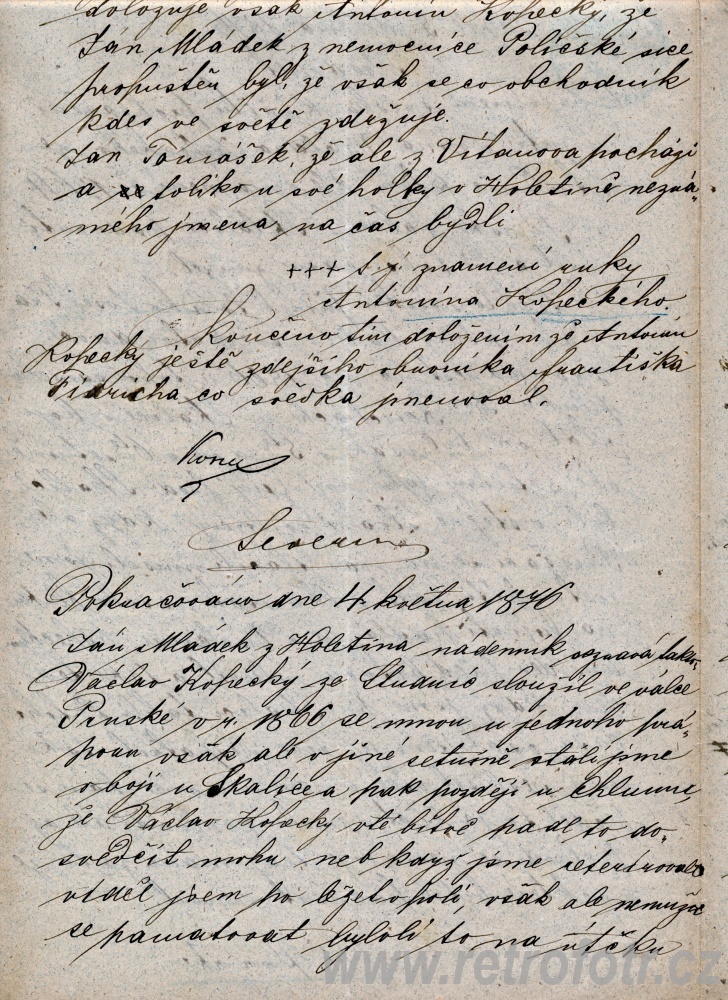 doložuje však Antonín Kopecký, že
Ján Mládek z nemocnice Poličské sice
propuštěn byl, že však se co obchodník
kdes ve světě zdržuje.
Jan Tomášek, že ale z Vítanova pochází
a toliko u své holky v Holetíně nezná-
mého jména na čas bydlí
+++ znamení ruky
Antonína Kopeckého
Končeno tím doložením že Antonín
Kopecký ještě zdejšího obvoníka Františka
Fidricha co svědka jmenoval.
Severin
Pokračováno dne 4. května 1876
Ján Mládek z Holetína nádenník seznává takto:
Václav Kopecký ze Studnic sloužil ve válce
Pruské v r. 1866 se mnou u jednoho prá-
poru však ale v jiné setnině, stáli jsme
v boji u Skalice a pak později u Chlumu,
že Václav Kopecký v té bitvě padl to do-
svědčit mohu neb když jsme reterírovali
viděl jsem ho ležet v poli, však ale nemužu
se pamatovat byloli to na útěku
www.retrofotr.cz